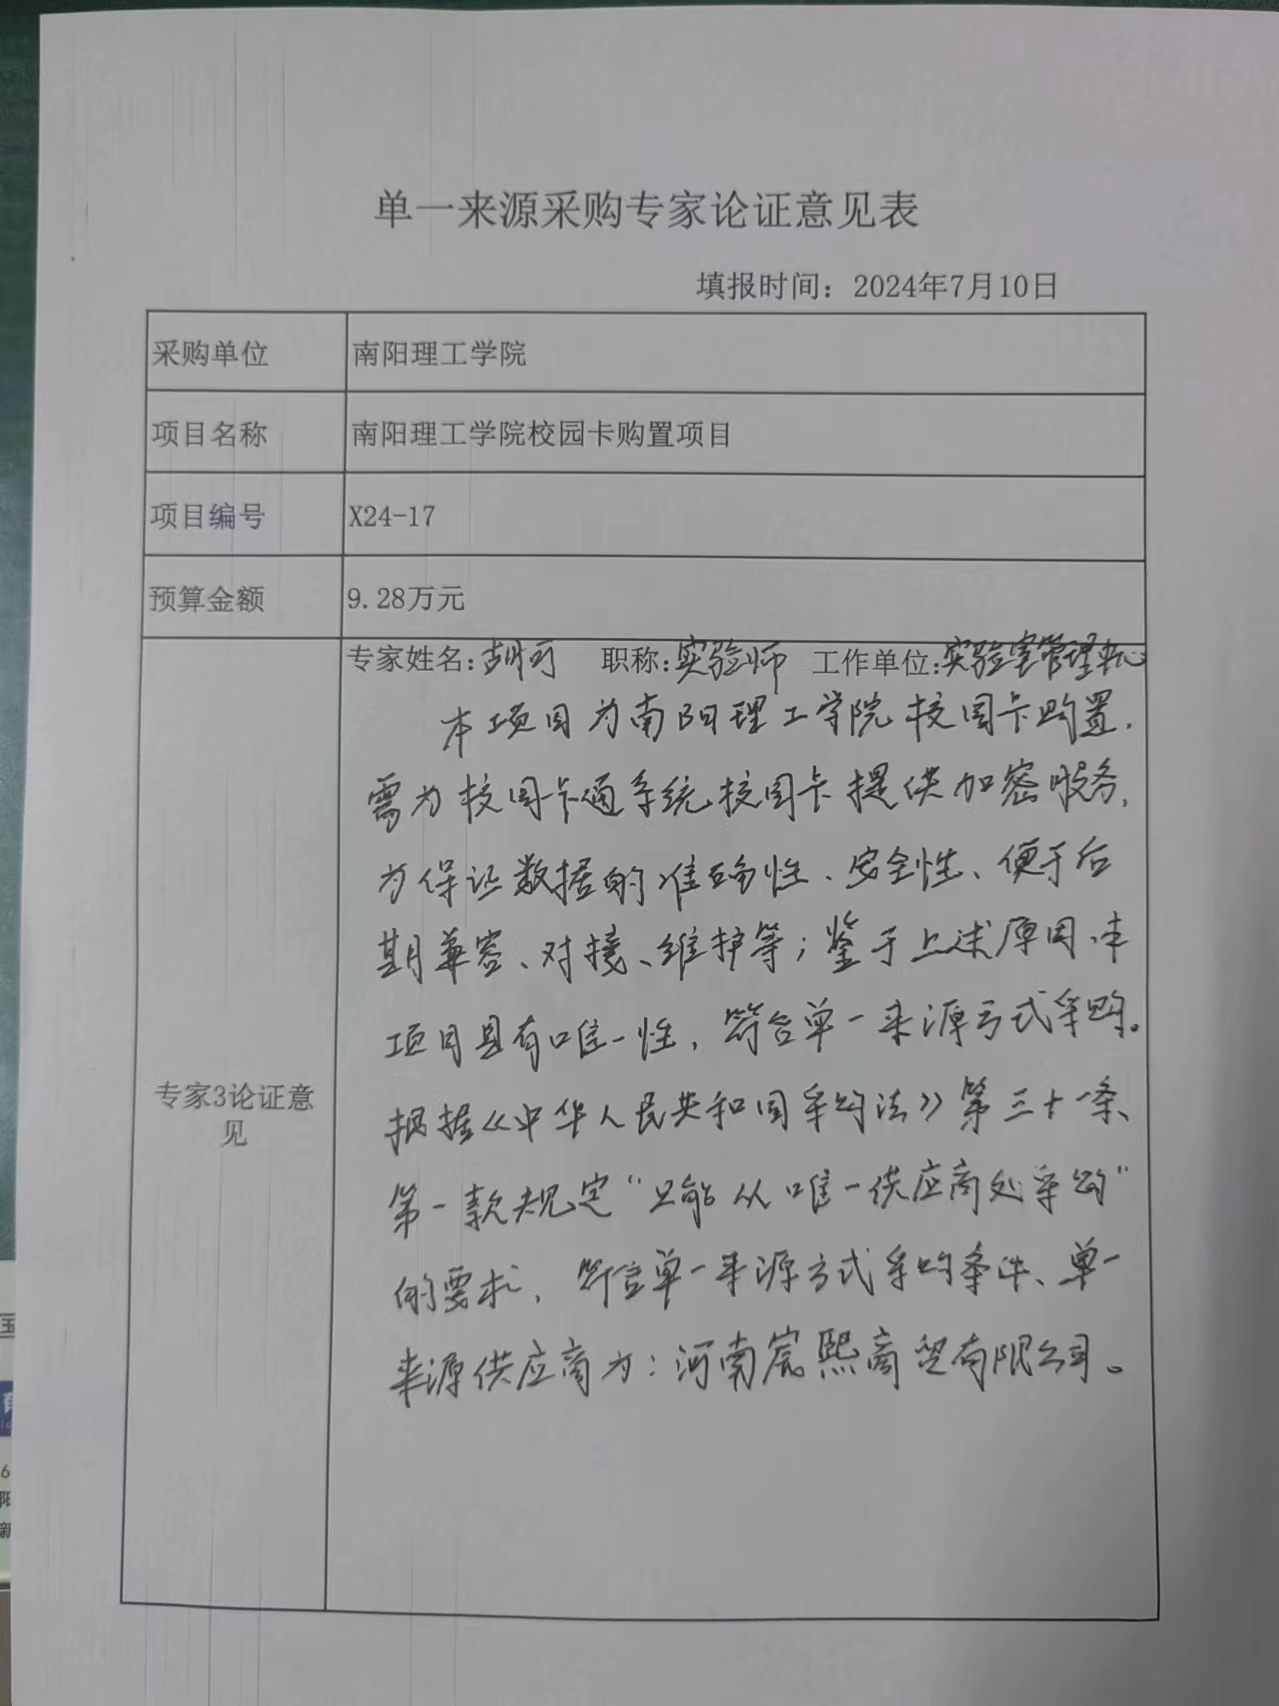 单一来源采购专家论证意见表
填报时间：2024年7月10日
采购单位 南阳理工学院
项目名称 南阳理工学院校园卡购置项目
项目编号 X24-17
预算金额 9.28万元
专家姓名：胡可 职称：实验师 工作单位：实验室管理中心
本项目为南阳理工学院校园卡购置，
需为校园卡通系统校园卡提供加密服务，
为保证数据的准确性、安全性、便于后
期兼容、对接、维护等；鉴于上述原因、本
项目具有唯一性，符合单一来源方式采购。
根据《中华人民共和国采购法》第三十一条、
第一款规定“只能从唯一供应商处采购”
的要求，符合单一来源方式采购条件、单一
来源供应商为：河南宸熙商贸有限公司。
专家3论证意
见